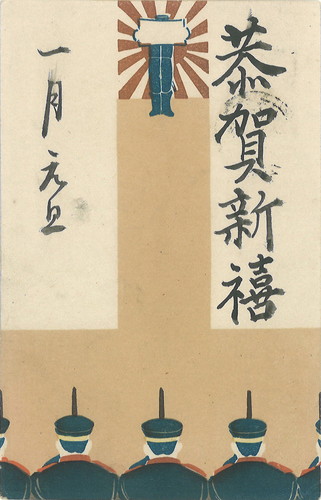 恭賀新禧
一月元旦